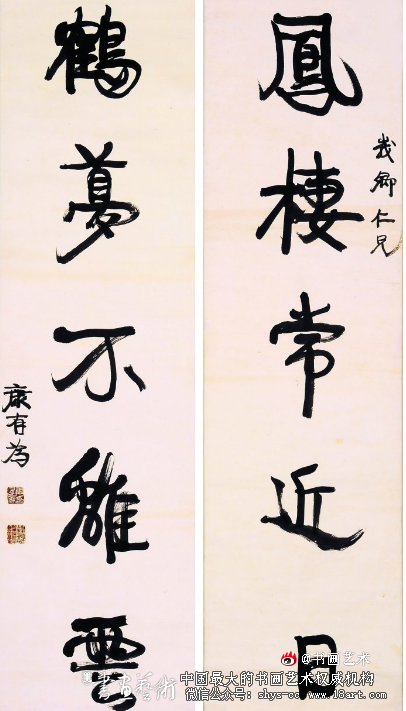 鳳棲常近日
茂卿仁兄
鶴夢不離雲
康有為
@书画艺术
書畫藝術 中国最大的书画艺术权威机构
微信公众号：shys-cc www.18art.com